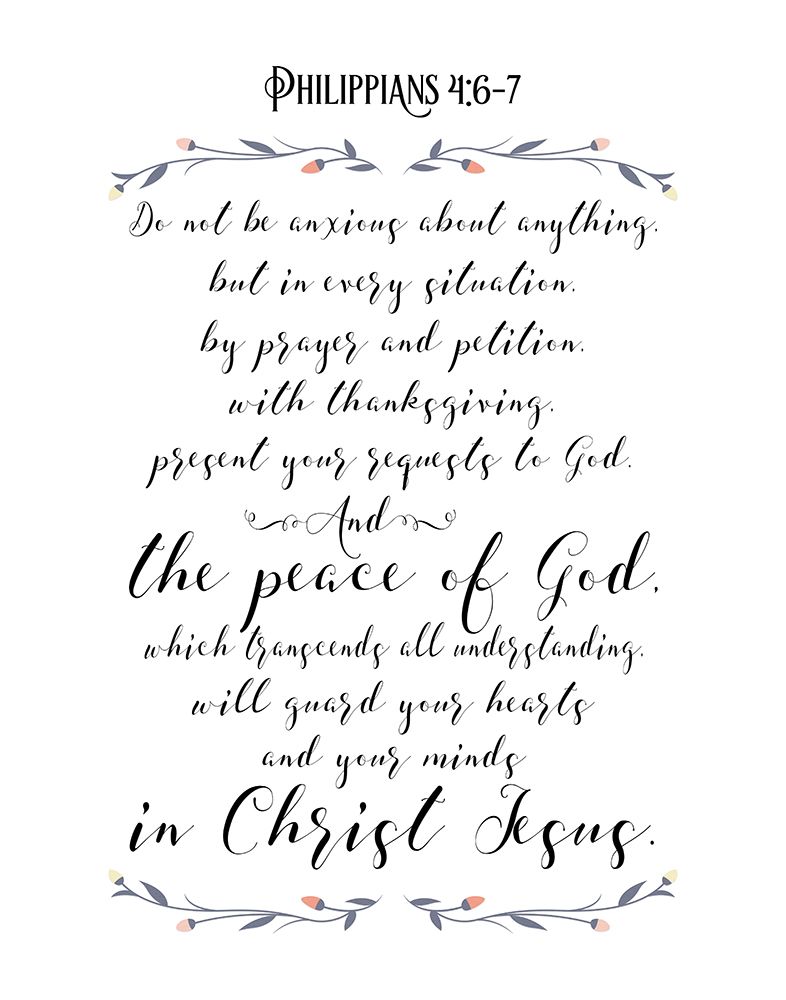 Philippians 4:6-7
Do not be anxious about anything,
but in every situation,
by prayer and petition,
with thanksgiving,
present your requests to God.
And
the peace of God,
which transcends all understanding,
will guard your hearts
and your minds
in Christ Jesus.